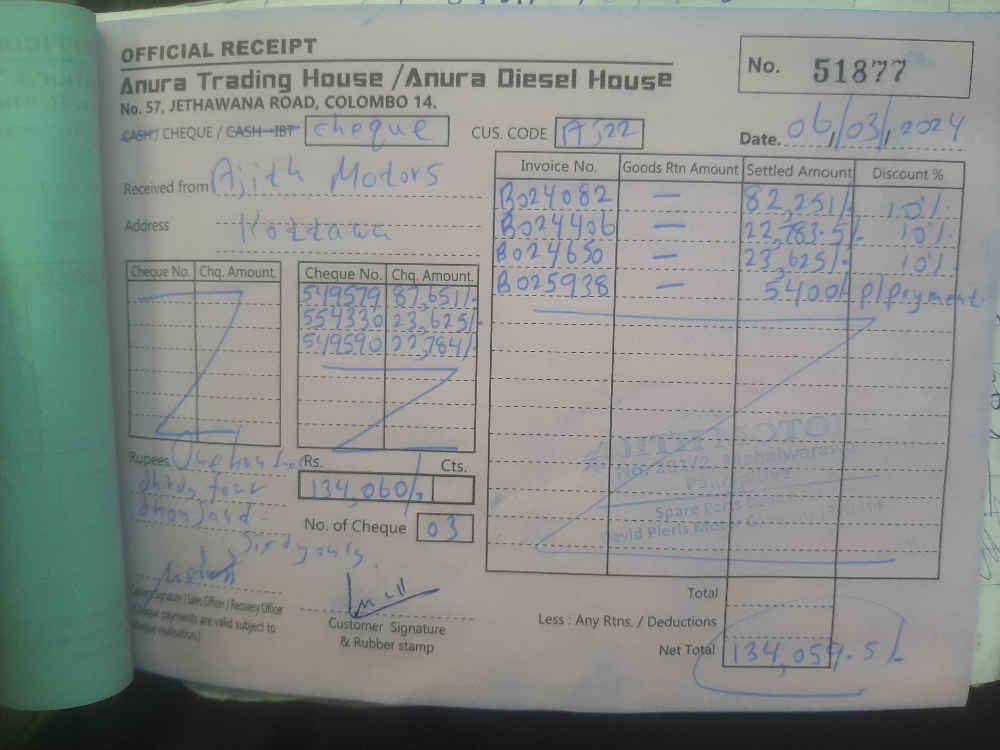 OFFICIAL RECEIPT
Anura Trading House /Anura Diesel House
No. 57, JETHAWANA ROAD, COLOMBO 14.
No. 51877
CASH / CHEQUE / CASH IBT cheque
CUS. CODE AJ22
Date. 06/03/2024
Received from Ajith Motors
Address Kottawa
Invoice No. Goods Rtn Amount Settled Amount Discount %
B024082 — 82,251/- 10%
B024406 — 22,783.5/- 10%
B024650 — 23,625/- 10%
B025938 — 5400/- P/payment
Cheque No. Chq. Amount.
Cheque No. Chq. Amount.
549579 87,651/-
554330 23,625/-
549590 22,784/-
Rupees. One hundred
thirty four
thousand
sixty only.
Rs. Cts.
134,060/-
No. of Cheque 03
Signature / Sales Officer / Recovery Officer
(Cheque payments are valid subject to
cheque realisation.)
Customer Signature
& Rubber stamp
No. 201/2, Mahalwarawa
Pannipitiya
Spare Parts
David Pieris Motor Company Ltd
Total
Less : Any Rtns. / Deductions
Net Total 134,059.5/-